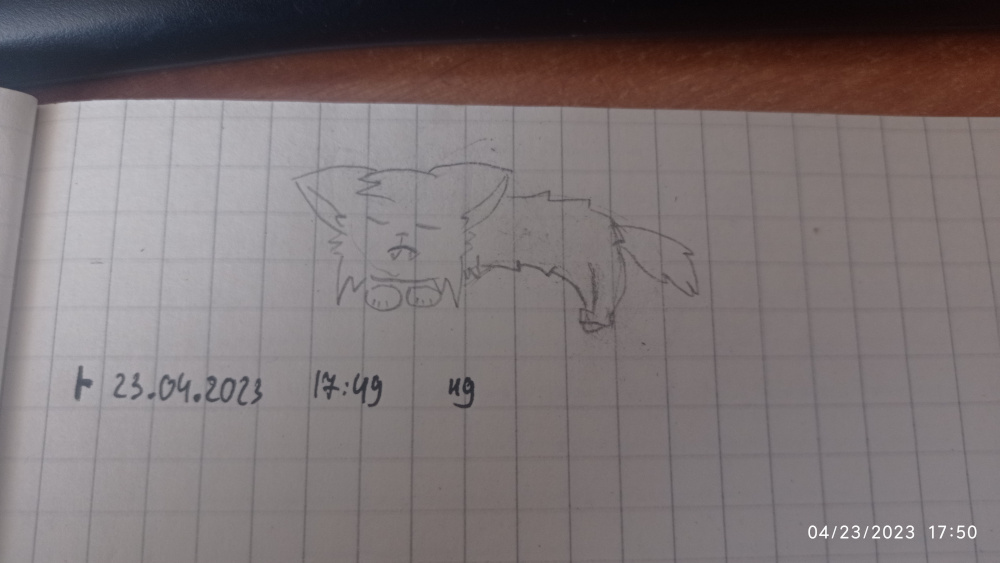 ⊦ 23.04.2023 17:49 нд
04/23/2023 17:50